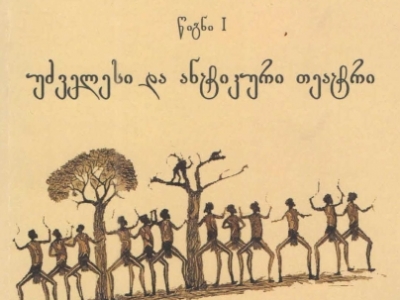 წიგნი I
უძველესი და ანტიკური თეატრი